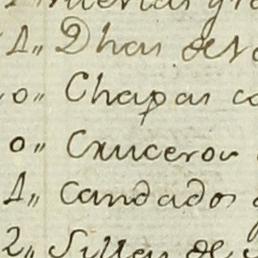 1,, Dhas de
0,, Chapas
0,, Cruceros
1,, Candados
2,, Sillas de